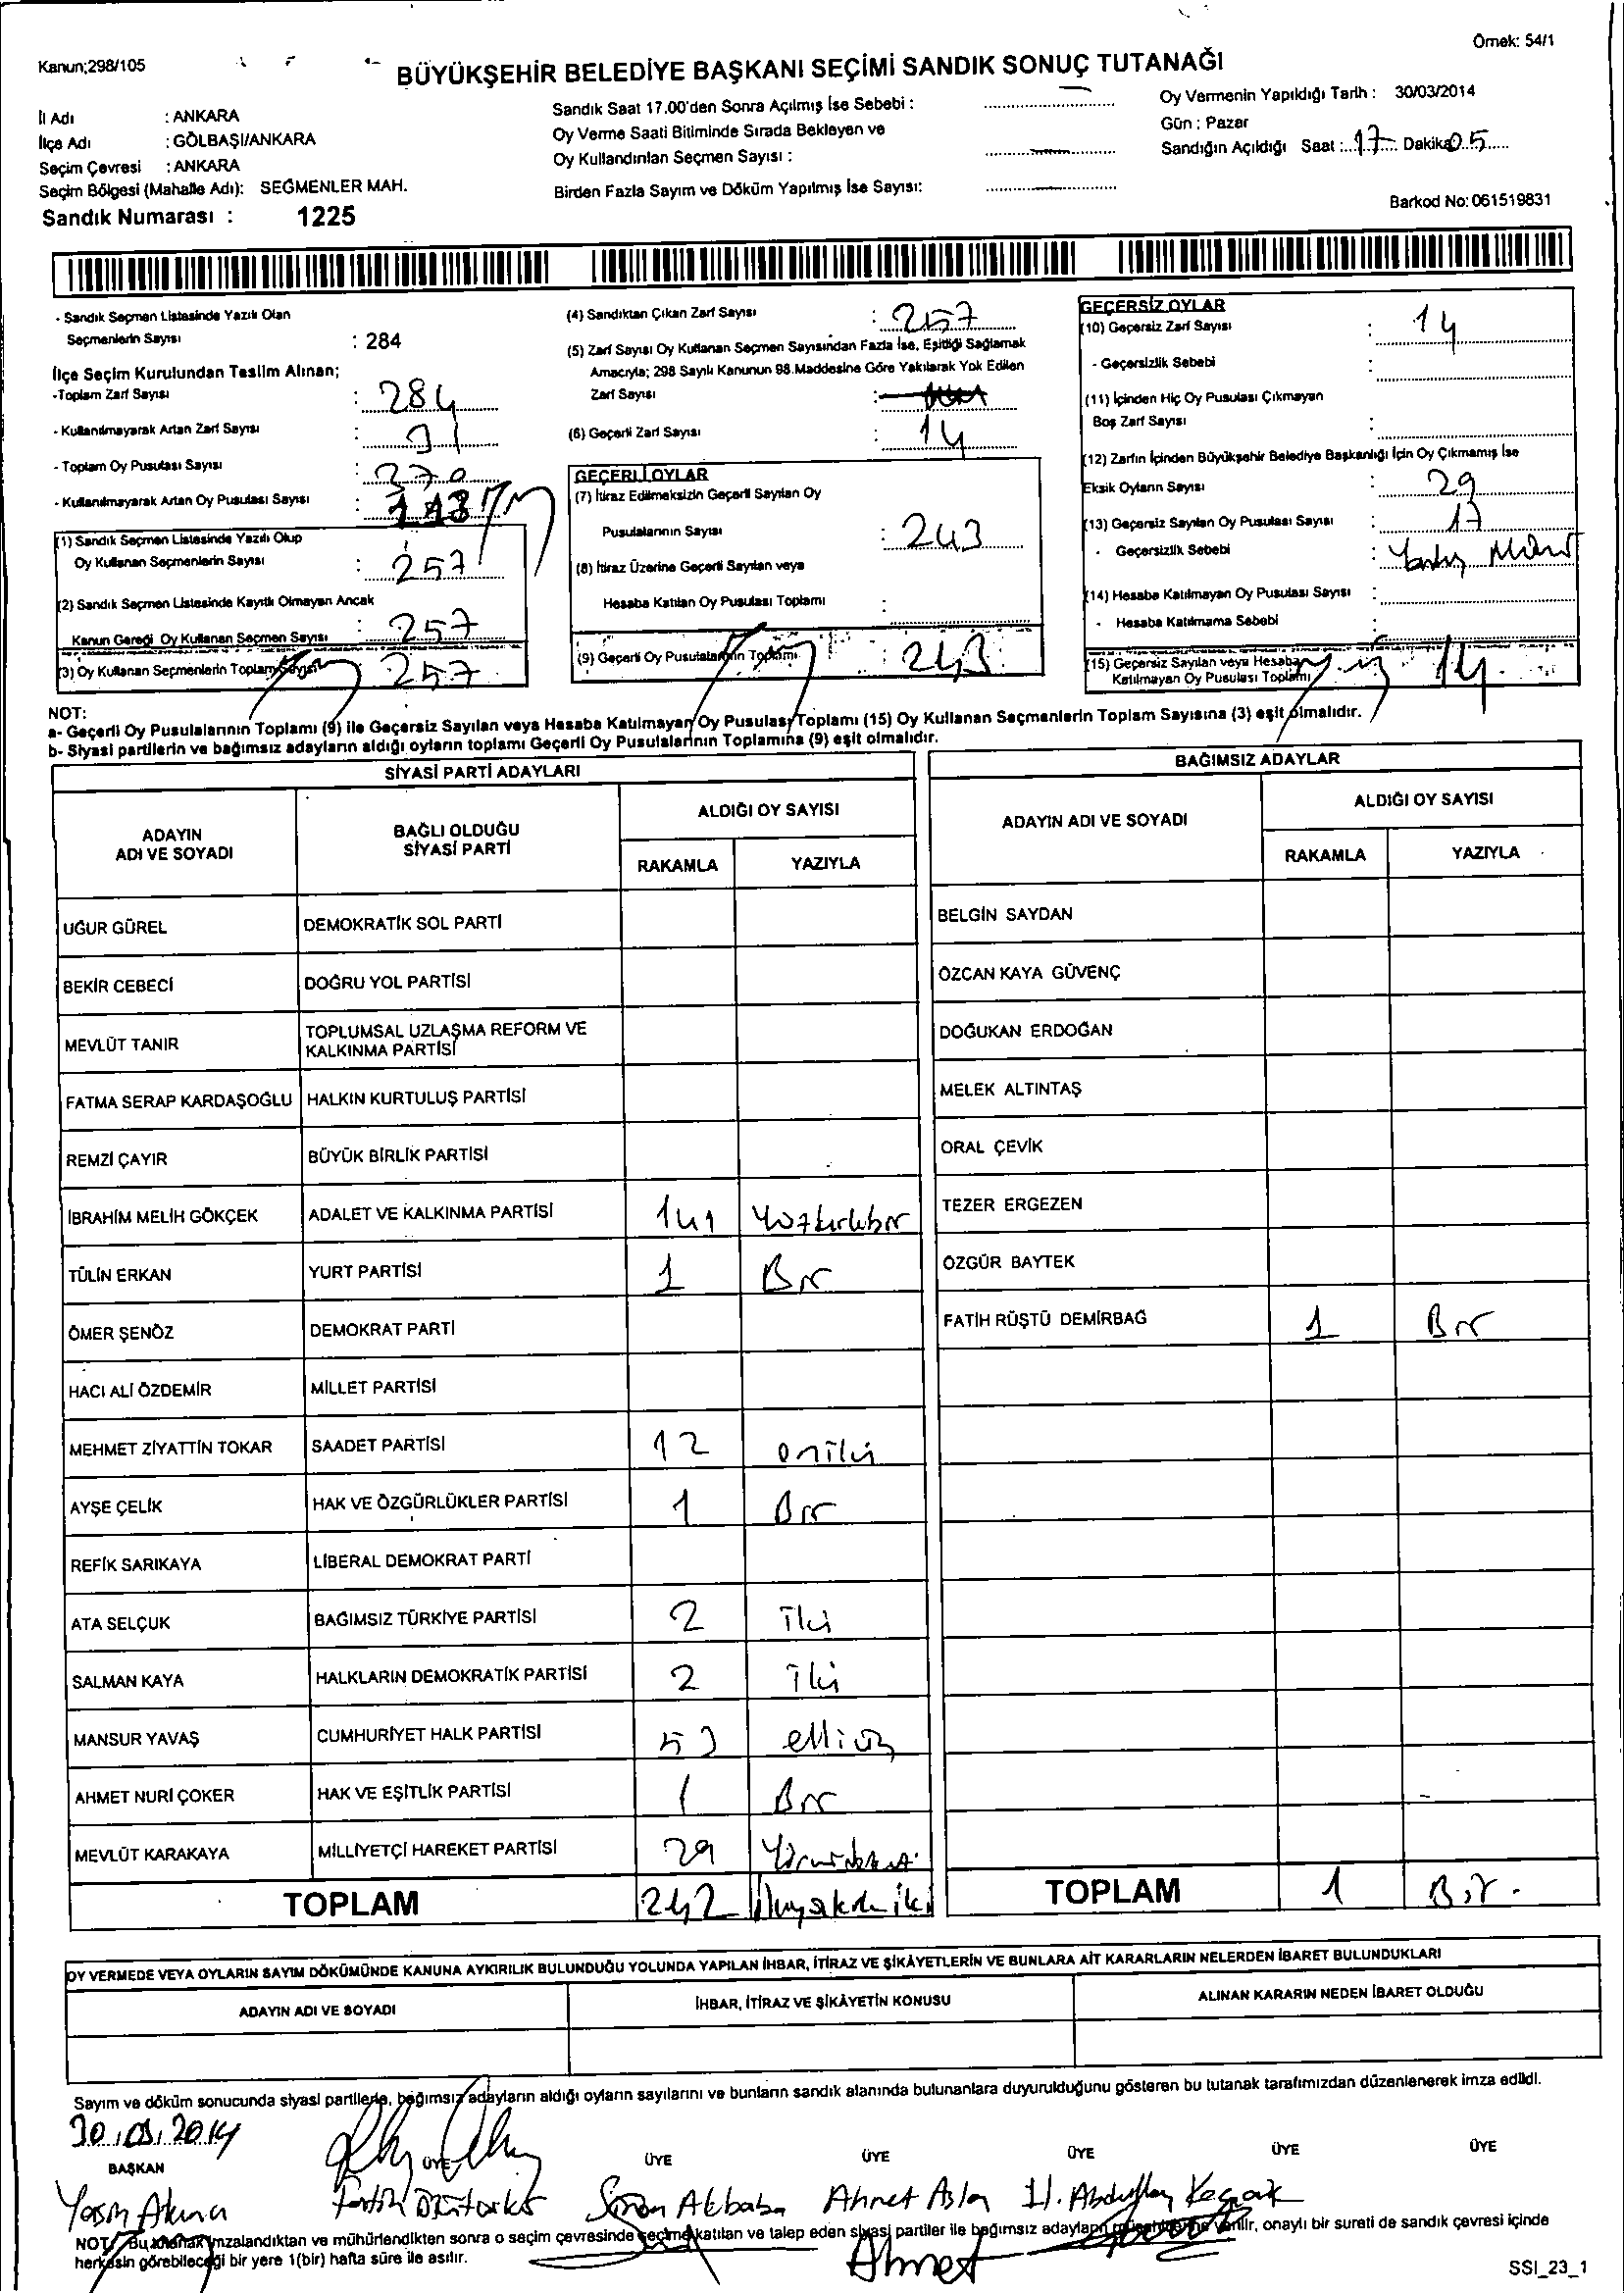 Örnek: 54/1
Kanun;298/105
BÜYÜKŞEHİR BELEDİYE BAŞKANI SEÇİMİ SANDIK SONUÇ TUTANAĞI
İl Adı : ANKARA
İlçe Adı : GÖLBAŞI/ANKARA
Seçim Çevresi : ANKARA
Seçim Bölgesi (Mahalle Adı): SEĞMENLER MAH.
Sandık Numarası : 1225
Sandık Saat 17.00'den Sonra Açılmış İse Sebebi :
Oy Verme Saati Bitiminde Sırada Bekleyen ve
Oy Kullandırılan Seçmen Sayısı :
Birden Fazla Sayım ve Döküm Yapılmış İse Sayısı:
Oy Vermenin Yapıldığı Tarih : 30/03/2014
Gün : Pazar
Sandığın Açıldığı Saat : 17 Dakika 05
Barkod No: 061519831
- Sandık Seçmen Listesinde Yazılı Olan
Seçmenlerin Sayısı : 284
İlçe Seçim Kurulundan Teslim Alınan;
-Toplam Zarf Sayısı : 284
- Kullanılmayarak Artan Zarf Sayısı :
- Toplam Oy Pusulası Sayısı : 370
- Kullanılmayarak Artan Oy Pusulası Sayısı : 113
(1) Sandık Seçmen Listesinde Yazılı Olup
Oy Kullanan Seçmenlerin Sayısı : 257
(2) Sandık Seçmen Listesinde Kayıtlı Olmayan Ancak
Kanun Gereği Oy Kullanan Seçmen Sayısı : 257
(3) Oy Kullanan Seçmenlerin Toplam Sayısı 257
(4) Sandıktan Çıkan Zarf Sayısı : 257
(5) Zarf Sayısı Oy Kullanan Seçmen Sayısından Fazla İse, Eşitliği Sağlamak
Amacıyla; 298 Sayılı Kanunun 98.Maddesine Göre Yakılarak Yok Edilen
Zarf Sayısı :
(6) Geçerli Zarf Sayısı : 14
GEÇERLİ OYLAR
(7) İtiraz Edilmeksizin Geçerli Sayılan Oy
Pusulalarının Sayısı : 243
(8) İtiraz Üzerine Geçerli Sayılan veya
Hesaba Katılan Oy Pusulası Toplamı :
(9) Geçerli Oy Pusulalarının Toplamı : 243
GEÇERSİZ OYLAR
(10) Geçersiz Zarf Sayısı : 14
- Geçersizlik Sebebi :
(11) İçinden Hiç Oy Pusulası Çıkmayan
Boş Zarf Sayısı :
(12) Zarfın İçinden Büyükşehir Belediye Başkanlığı İçin Oy Çıkmamış İse
Eksik Oyların Sayısı : 29
(13) Geçersiz Sayılan Oy Pusulası Sayısı : 17
- Geçersizlik Sebebi :
(14) Hesaba Katılmayan Oy Pusulası Sayısı :
- Hesaba Katılmama Sebebi :
(15) Geçersiz Sayılan veya Hesaba
Katılmayan Oy Pusulası Toplamı 14
NOT:
a- Geçerli Oy Pusulalarının Toplamı (9) ile Geçersiz Sayılan veya Hesaba Katılmayan Oy Pusulası Toplamı (15) Oy Kullanan Seçmenlerin Toplam Sayısına (3) eşit olmalıdır.
b- Siyasi partilerin ve bağımsız adayların aldığı oyların toplamı Geçerli Oy Pusulalarının Toplamına (9) eşit olmalıdır.
SİYASİ PARTİ ADAYLARI
ADAYIN ADI VE SOYADI BAĞLI OLDUĞU SİYASİ PARTİ ALDIĞI OY SAYISI
RAKAMLA YAZIYLA
UĞUR GÜREL DEMOKRATİK SOL PARTİ
BEKİR CEBECİ DOĞRU YOL PARTİSİ
MEVLÜT TANIR TOPLUMSAL UZLAŞMA REFORM VE KALKINMA PARTİSİ
FATMA SERAP KARDAŞOĞLU HALKIN KURTULUŞ PARTİSİ
REMZİ ÇAYIR BÜYÜK BİRLİK PARTİSİ
İBRAHİM MELİH GÖKÇEK ADALET VE KALKINMA PARTİSİ 141 Yüzkırkbir
TÜLİN ERKAN YURT PARTİSİ 1 Bir
ÖMER ŞENÖZ DEMOKRAT PARTİ
HACI ALİ ÖZDEMİR MİLLET PARTİSİ
MEHMET ZİYATTİN TOKAR SAADET PARTİSİ 12 oniki
AYŞE ÇELİK HAK VE ÖZGÜRLÜKLER PARTİSİ 1 Bir
REFİK SARIKAYA LİBERAL DEMOKRAT PARTİ
ATA SELÇUK BAĞIMSIZ TÜRKİYE PARTİSİ 2 iki
SALMAN KAYA HALKLARIN DEMOKRATİK PARTİSİ 2 iki
MANSUR YAVAŞ CUMHURİYET HALK PARTİSİ 53 elliüç
AHMET NURİ ÇOKER HAK VE EŞİTLİK PARTİSİ 1 Bir
MEVLÜT KARAKAYA MİLLİYETÇİ HAREKET PARTİSİ 29 Yirmidokuz
TOPLAM 242 ikiyüzkırkiki
BAĞIMSIZ ADAYLAR
ADAYIN ADI VE SOYADI ALDIĞI OY SAYISI
RAKAMLA YAZIYLA
BELGİN SAYDAN
ÖZCAN KAYA GÜVENÇ
DOĞUKAN ERDOĞAN
MELEK ALTINTAŞ
ORAL ÇEVİK
TEZER ERGEZEN
ÖZGÜR BAYTEK
FATİH RÜŞTÜ DEMİRBAĞ 1 Bir
TOPLAM 1 Bir.
OY VERMEDE VEYA OYLARIN SAYIM DÖKÜMÜNDE KANUNA AYKIRILIK BULUNDUĞU YOLUNDA YAPILAN İHBAR, İTİRAZ VE ŞİKÂYETLERİN VE BUNLARA AİT KARARLARIN NELERDEN İBARET BULUNDUKLARI
ADAYIN ADI VE SOYADI İHBAR, İTİRAZ VE ŞİKÂYETİN KONUSU ALINAN KARARIN NEDEN İBARET OLDUĞU
Sayım ve döküm sonucunda siyasi partilerle, bağımsız adayların aldığı oyların sayılarını ve bunların sandık alanında bulunanlara duyurulduğunu gösteren bu tutanak tarafımızdan düzenlenerek imza edildi.
30.03.2014
BAŞKAN ÜYE ÜYE ÜYE ÜYE ÜYE ÜYE
Fatih Akbaba Ahmet Aslan H. Abdullah
NOT: Bu tutanak imzalandıktan ve mühürlendikten sonra o seçim çevresinde seçime katılan ve talep eden siyasi partiler ile bağımsız adayların müşahitlerine verilir, onaylı bir sureti de sandık çevresi içinde
herkesin görebileceği bir yere 1(bir) hafta süre ile asılır.
Ahmet
SSI_23_1